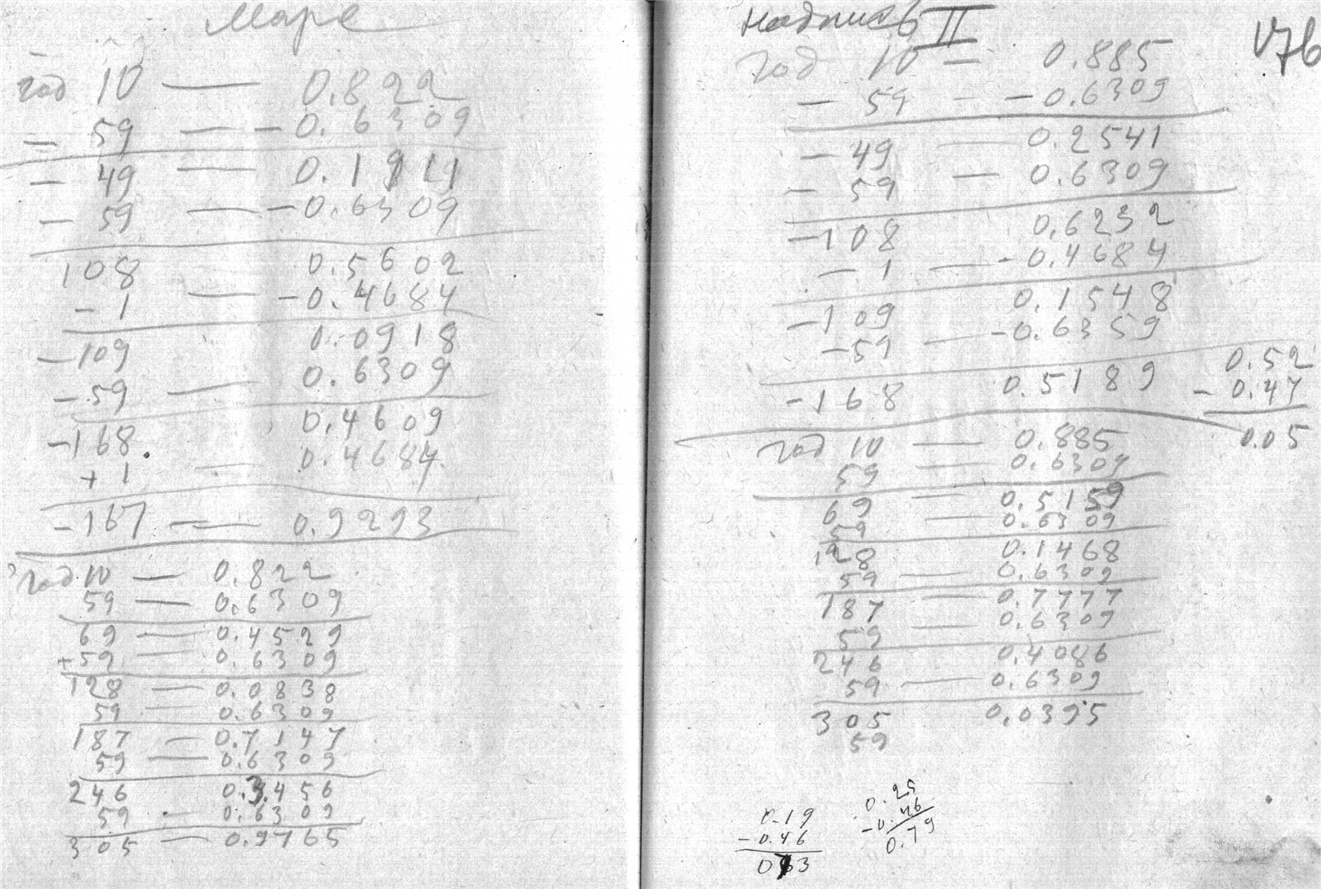 Маре
год 10 — 0.822
— 59 — - 0.6309
— 49 — 0.1911
— 59 — -0.6309
108 0.5602
- 1 — -0.4684
—109 0.0918
— 59 — 0.6309
-168. 0.4609
+ 1 — 0.4684
-167 — 0.9293
год 10 — 0.822
59 — 0.6309
69 — 0.4529
+59 — 0.6309
128 — 0.0838
59 — 0.6309
187 — 0.7147
59 — 0.6309
246 0.3456
59 - 0.6309
305 — 0.9765
надпись II
176
год 10 — 0.885
— 59 — -0.6309
— 49 — 0.2541
— 59 — 0.6309
-108 0.6232
— 1 — -0.4684
-109 0.1548
-59 — -0.6359
-168 0.5189
0.52
- 0.47
0.05
год 10 — 0.885
59 — 0.6309
69 — 0.5159
59 — 0.6309
128 0.1468
59 — 0.6309
187 — 0.7777
59 0.6309
246 0.4086
59 — 0.6309
305 0.0395
59
0.19
-0.46
0.25
-0.46
0.79